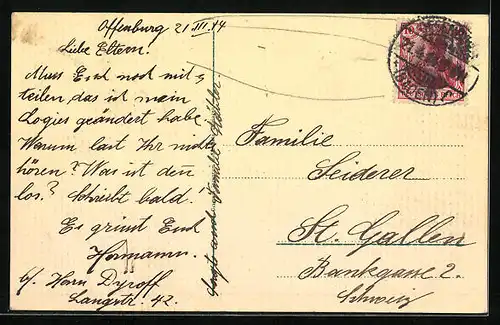 Offenburg 21 III. 14
Liebe Eltern!
Muss Euch noch mit=
teilen, das ich mein
Logies geändert habe.
Warum last Ihr nichts
hören? Was ist den
los? Schreibt bald.
Es grüsst Euch
Hermann.
b/ Herrn Dyroff
Langstr. 42.
Familie
Seiderer
St. Gallen
Bankgasse 2.
Schweiz